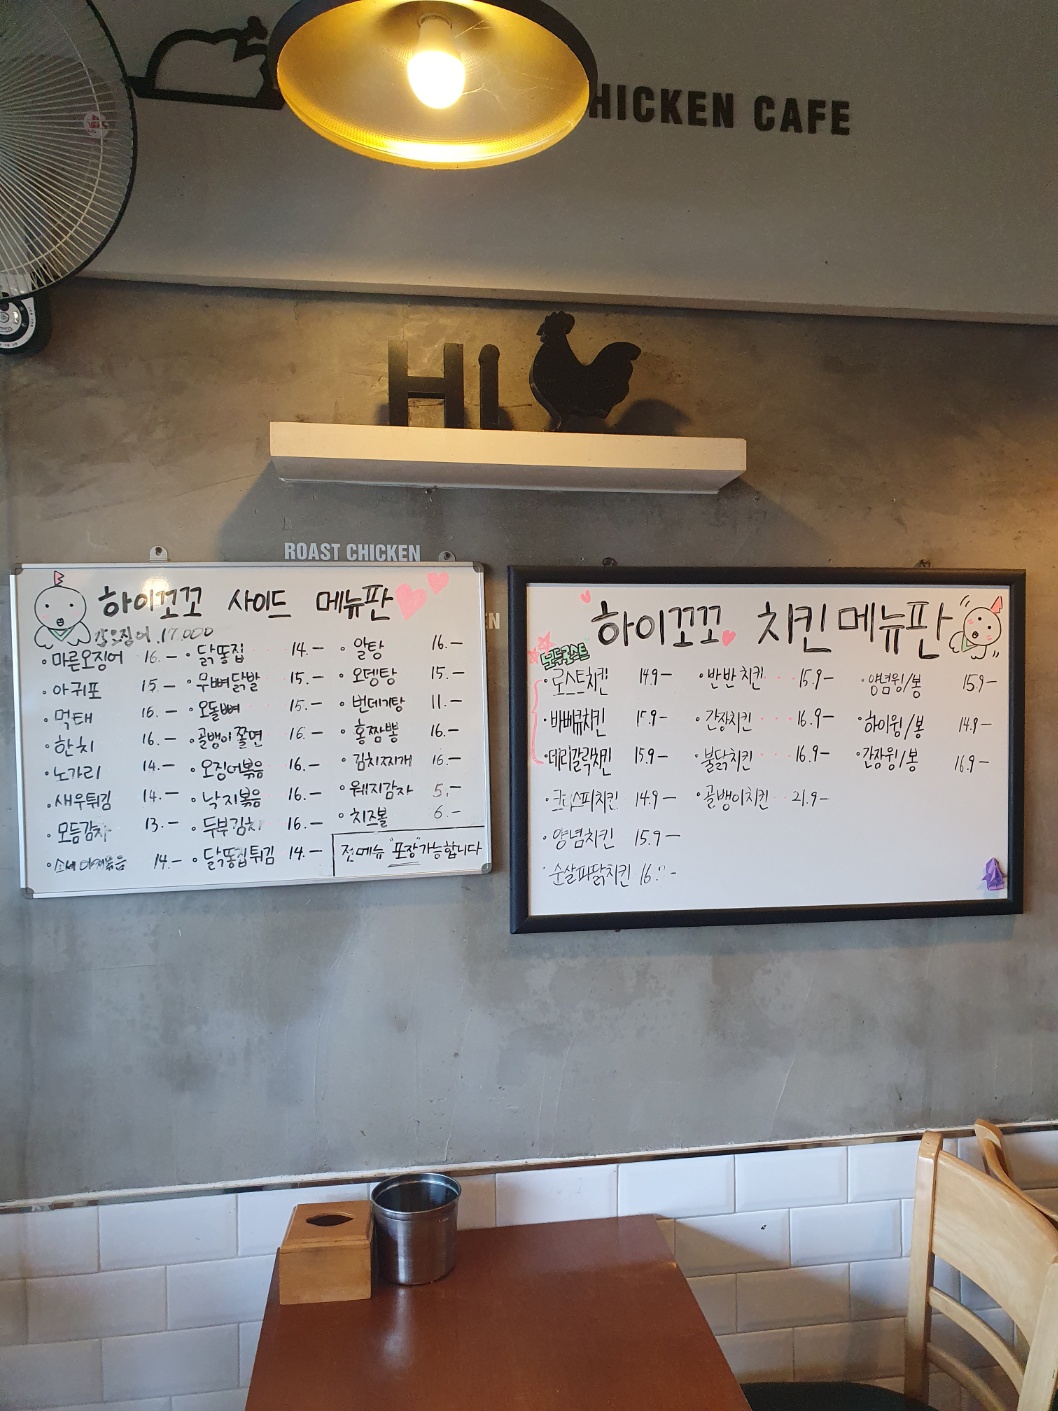 HICKEN CAFE
Hi
ROAST CHICKEN
EN
하이꼬꼬 사이드 메뉴판
갑오징어 17.000
·마른오징어 16.- ·닭똥집 14.- ·알탕 16.-
·아귀포 15.- ·무뼈닭발 15.- ·오뎅탕 15.-
·먹태 16.- ·오돌뼈 15.- ·번데기탕 11.-
·한치 16.- ·골뱅이쫄면 16.- ·홍짬뽕 16.-
·노가리 14.- ·오징어볶음 16.- ·김치찌개 16.-
·새우튀김 14.- ·낙지볶음 16.- ·웨지감자 5.-
·모듬감자 13.- ·두부김치 16.- ·치즈볼 6.-
14.- ·닭똥집튀김 14.- 전메뉴 "포장"가능합니다
하이꼬꼬 치킨메뉴판
·로스트치킨 14.9- ·반반치킨 15.9- ·양념윙/봉 15.9-
·바베큐치킨 15.9- ·간장치킨 16.9- ·하이윙/봉 14.9-
·데리갈릭치킨 15.9- ·불닭치킨 16.9- ·간장윙/봉 16.9-
·크리스피치킨 14.9- ·골뱅이치킨 21.9-
·양념치킨 15.9-
·순살파닭치킨